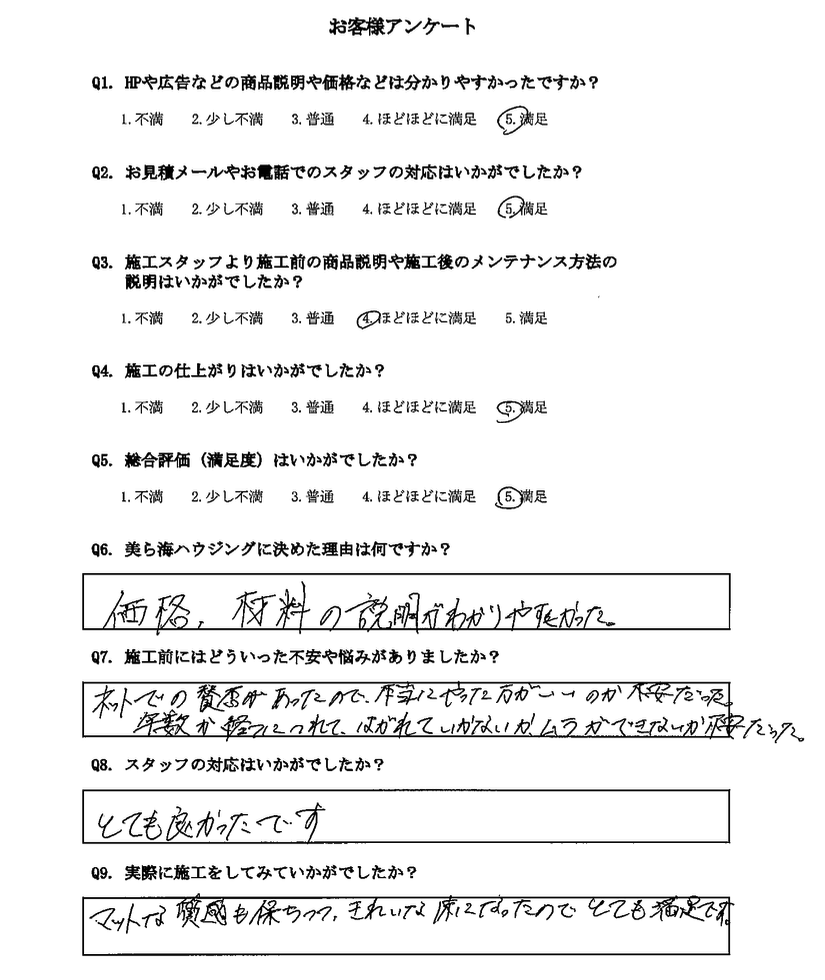 お客様アンケート
Q1. HPや広告などの商品説明や価格などは分かりやすかったですか？
1.不満 2.少し不満 3.普通 4.ほどほどに満足 5.満足
Q2. お見積メールやお電話でのスタッフの対応はいかがでしたか？
1.不満 2.少し不満 3.普通 4.ほどほどに満足 5.満足
Q3. 施工スタッフより施工前の商品説明や施工後のメンテナンス方法の
説明はいかがでしたか？
1.不満 2.少し不満 3.普通 4.ほどほどに満足 5.満足
Q4. 施工の仕上がりはいかがでしたか？
1.不満 2.少し不満 3.普通 4.ほどほどに満足 5.満足
Q5. 総合評価（満足度）はいかがでしたか？
1.不満 2.少し不満 3.普通 4.ほどほどに満足 5.満足
Q6. 美ら海ハウジングに決めた理由は何ですか？
価格、材料の説明がわかりやすかった。
Q7. 施工前にはどういった不安や悩みがありましたか？
ネットでの賛否があったので、本当にやった方がいいのか不安だった。
年数が経つにつれて、はがれていかないか、ムラができないか不安だった。
Q8. スタッフの対応はいかがでしたか？
とても良かったです
Q9. 実際に施工をしてみていかがでしたか？
マットな質感も保ちつつ、きれいな床になったのでとても満足です。